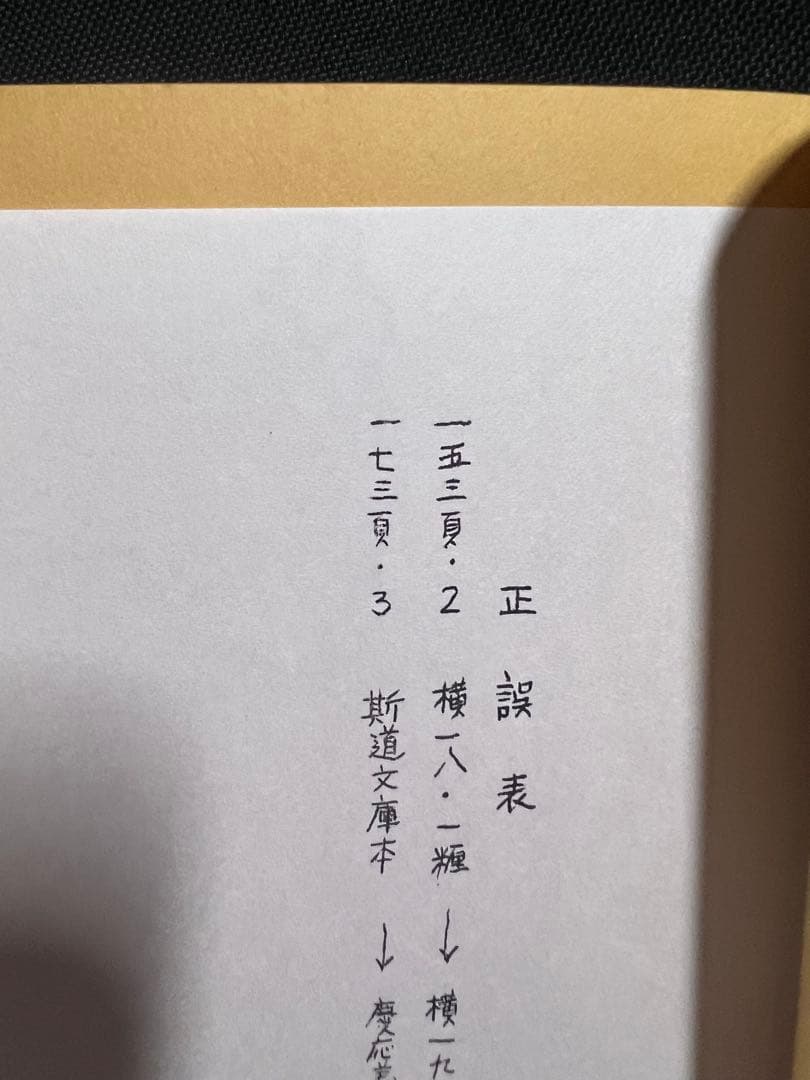 正誤表
一五三頁・2 横一八・一糎 → 横一九
一七三頁・3 斯道文庫本 → 慶応義